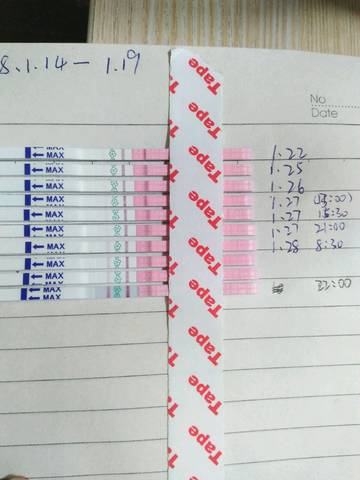 8.1.14 - 1.19
No
Date
Tape
Tape
Tape
Tape
Tape
Tape
Tape
Tape
Tape
MAX 1.22
MAX 1.25
MAX 1.26
MAX 1.27 (13:00)
MAX 1.27 15:30
MAX 1.27 21:00
MAX 1.28 8:30
MAX
MAX 22:00
MAX
MAX